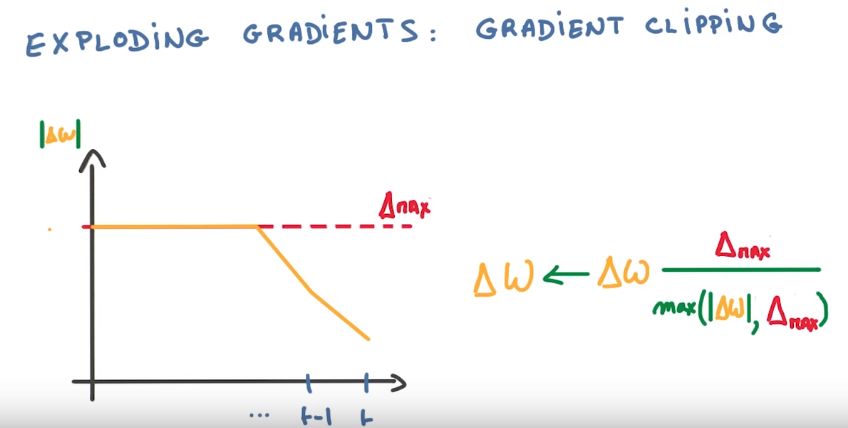 EXPLODiNG GRADiENTS: GRADiENT CLiPPiNG
|Δω|
Δmax
ΔW ← Δω Δmax / max(|Δω|, Δmax)
... t-1 t